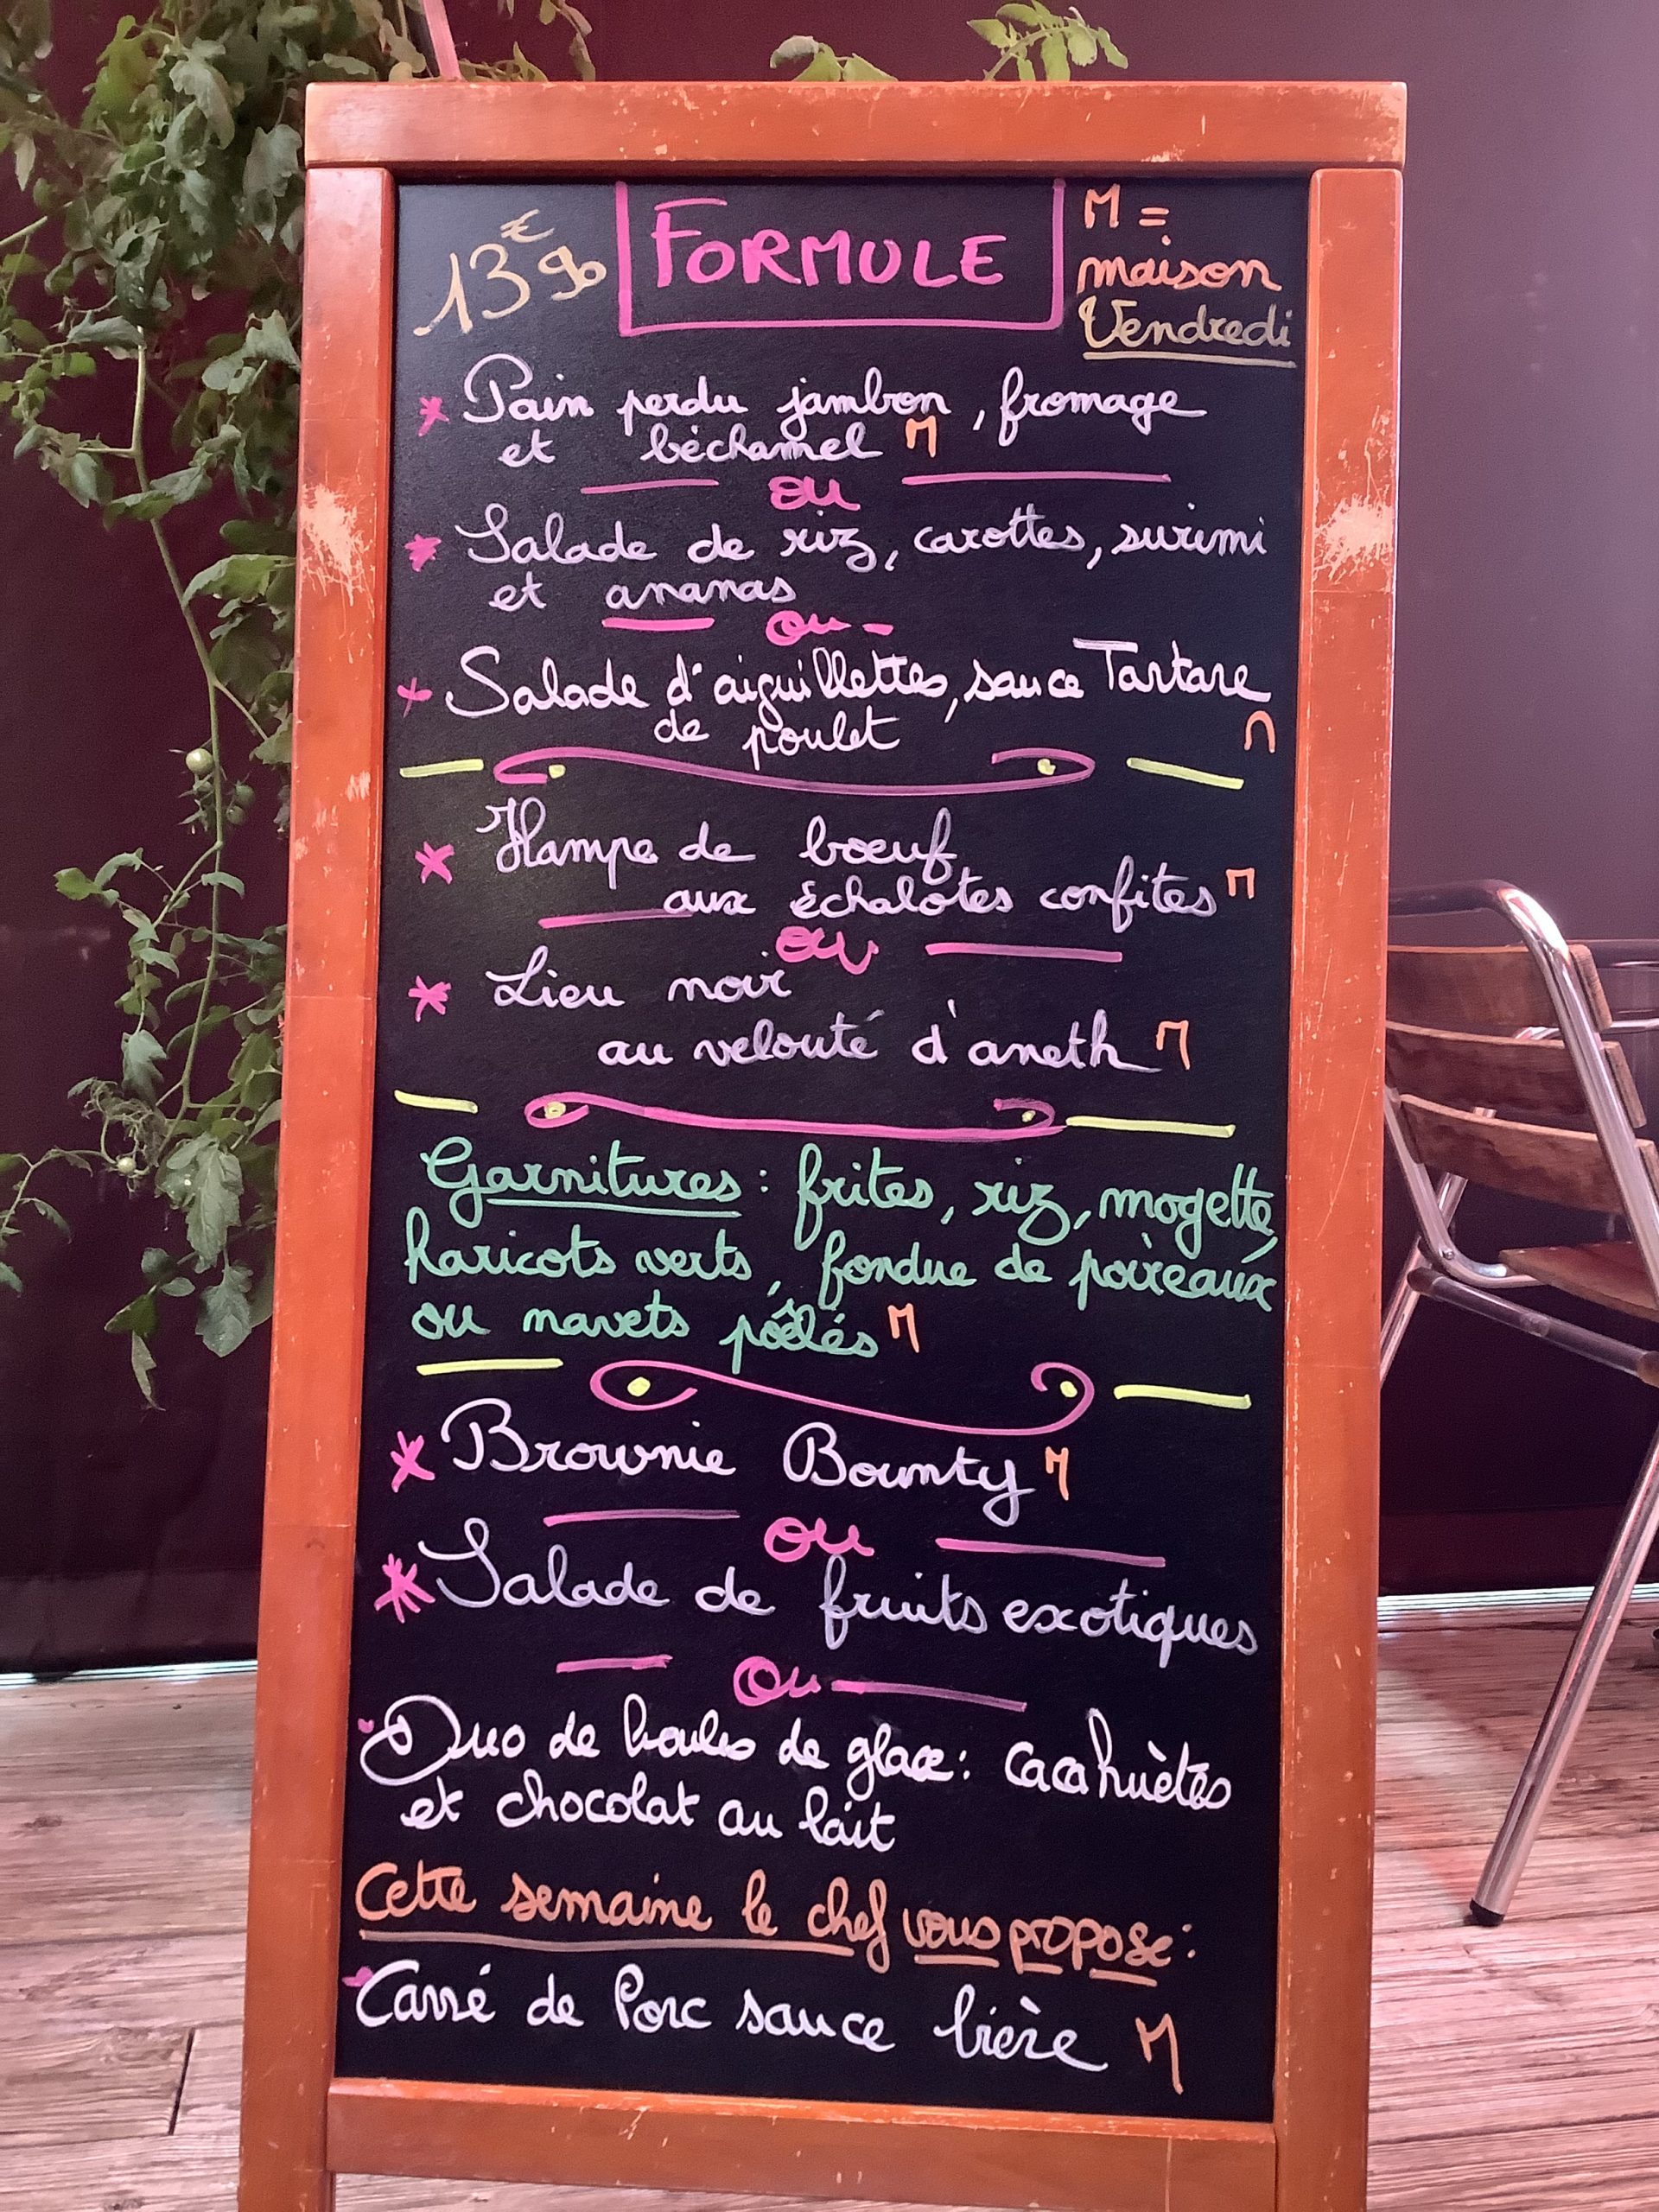 13€90 FORMULE M =
maison
Vendredi
* Pain perdu jambon, fromage
et béchamel M
ou
* Salade de riz, carottes, surimi
et ananas
ou
* Salade d'aiguillettes, sauce Tartare
de poulet M
* Hampe de bœuf
aux échalotes confites M
ou
* Lieu noir
au velouté d'aneth M
Garnitures : frites, riz, mogette,
haricots verts, fondue de poireaux
ou navets poêlés M
* Brownie Bounty M
ou
* Salade de fruits exotiques
ou
Duo de boules de glace : cacahuètes
et chocolat au lait
Cette semaine le chef vous propose :
Carré de Porc sauce bière M